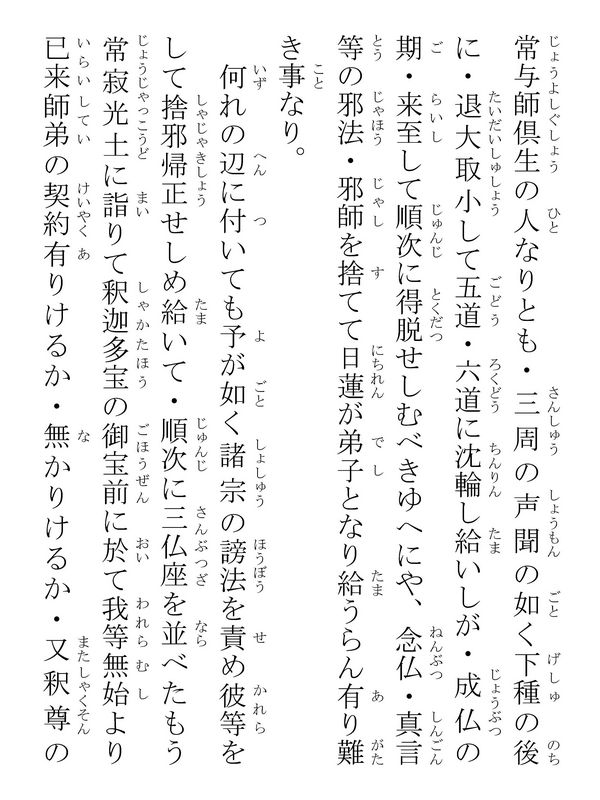 常与師倶生の人なりとも・三周の声聞の如く下種の後
に・退大取小して五道・六道に沈輪し給いしが・成仏の
期・来至して順次に得脱せしむべきゆへにや、念仏・真言
等の邪法・邪師を捨てて日蓮が弟子となり給うらん有り難
き事なり。
何れの辺に付いても予が如く諸宗の謗法を責め彼等を
して捨邪帰正せしめ給いて・順次に三仏座を並べたもう
常寂光土に詣りて釈迦多宝の御宝前に於て我等無始より
已来師弟の契約有りけるか・無かりけるか・又釈尊の